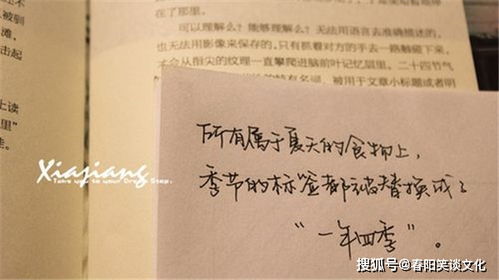 在了那里。
可以理解么？能够理解么？无法用语言去准确描述的，
也无法用影像来保存的。只有抓着对方的手去一路触碰下来，
才会从指尖的纹理一直攀爬进脑前叶记忆层里。二十四节气
有名词，被用于文章小标题或者明
被驯
滩，
击起
上读
里”
走。
所有属于夏天的食物上，
季节的标签都被替换成了
“一年四季”。
Xiajiang
Take up to your Drag Step.
搜狐号@春阳笑谈文化